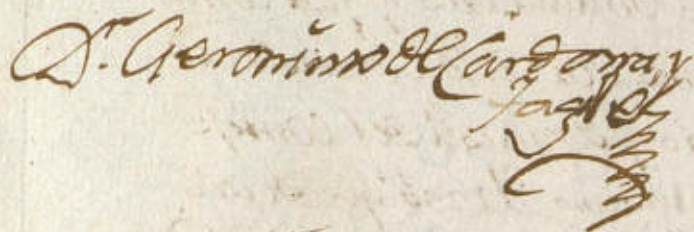 Dr. Geronimo de Cardona y
Tagle